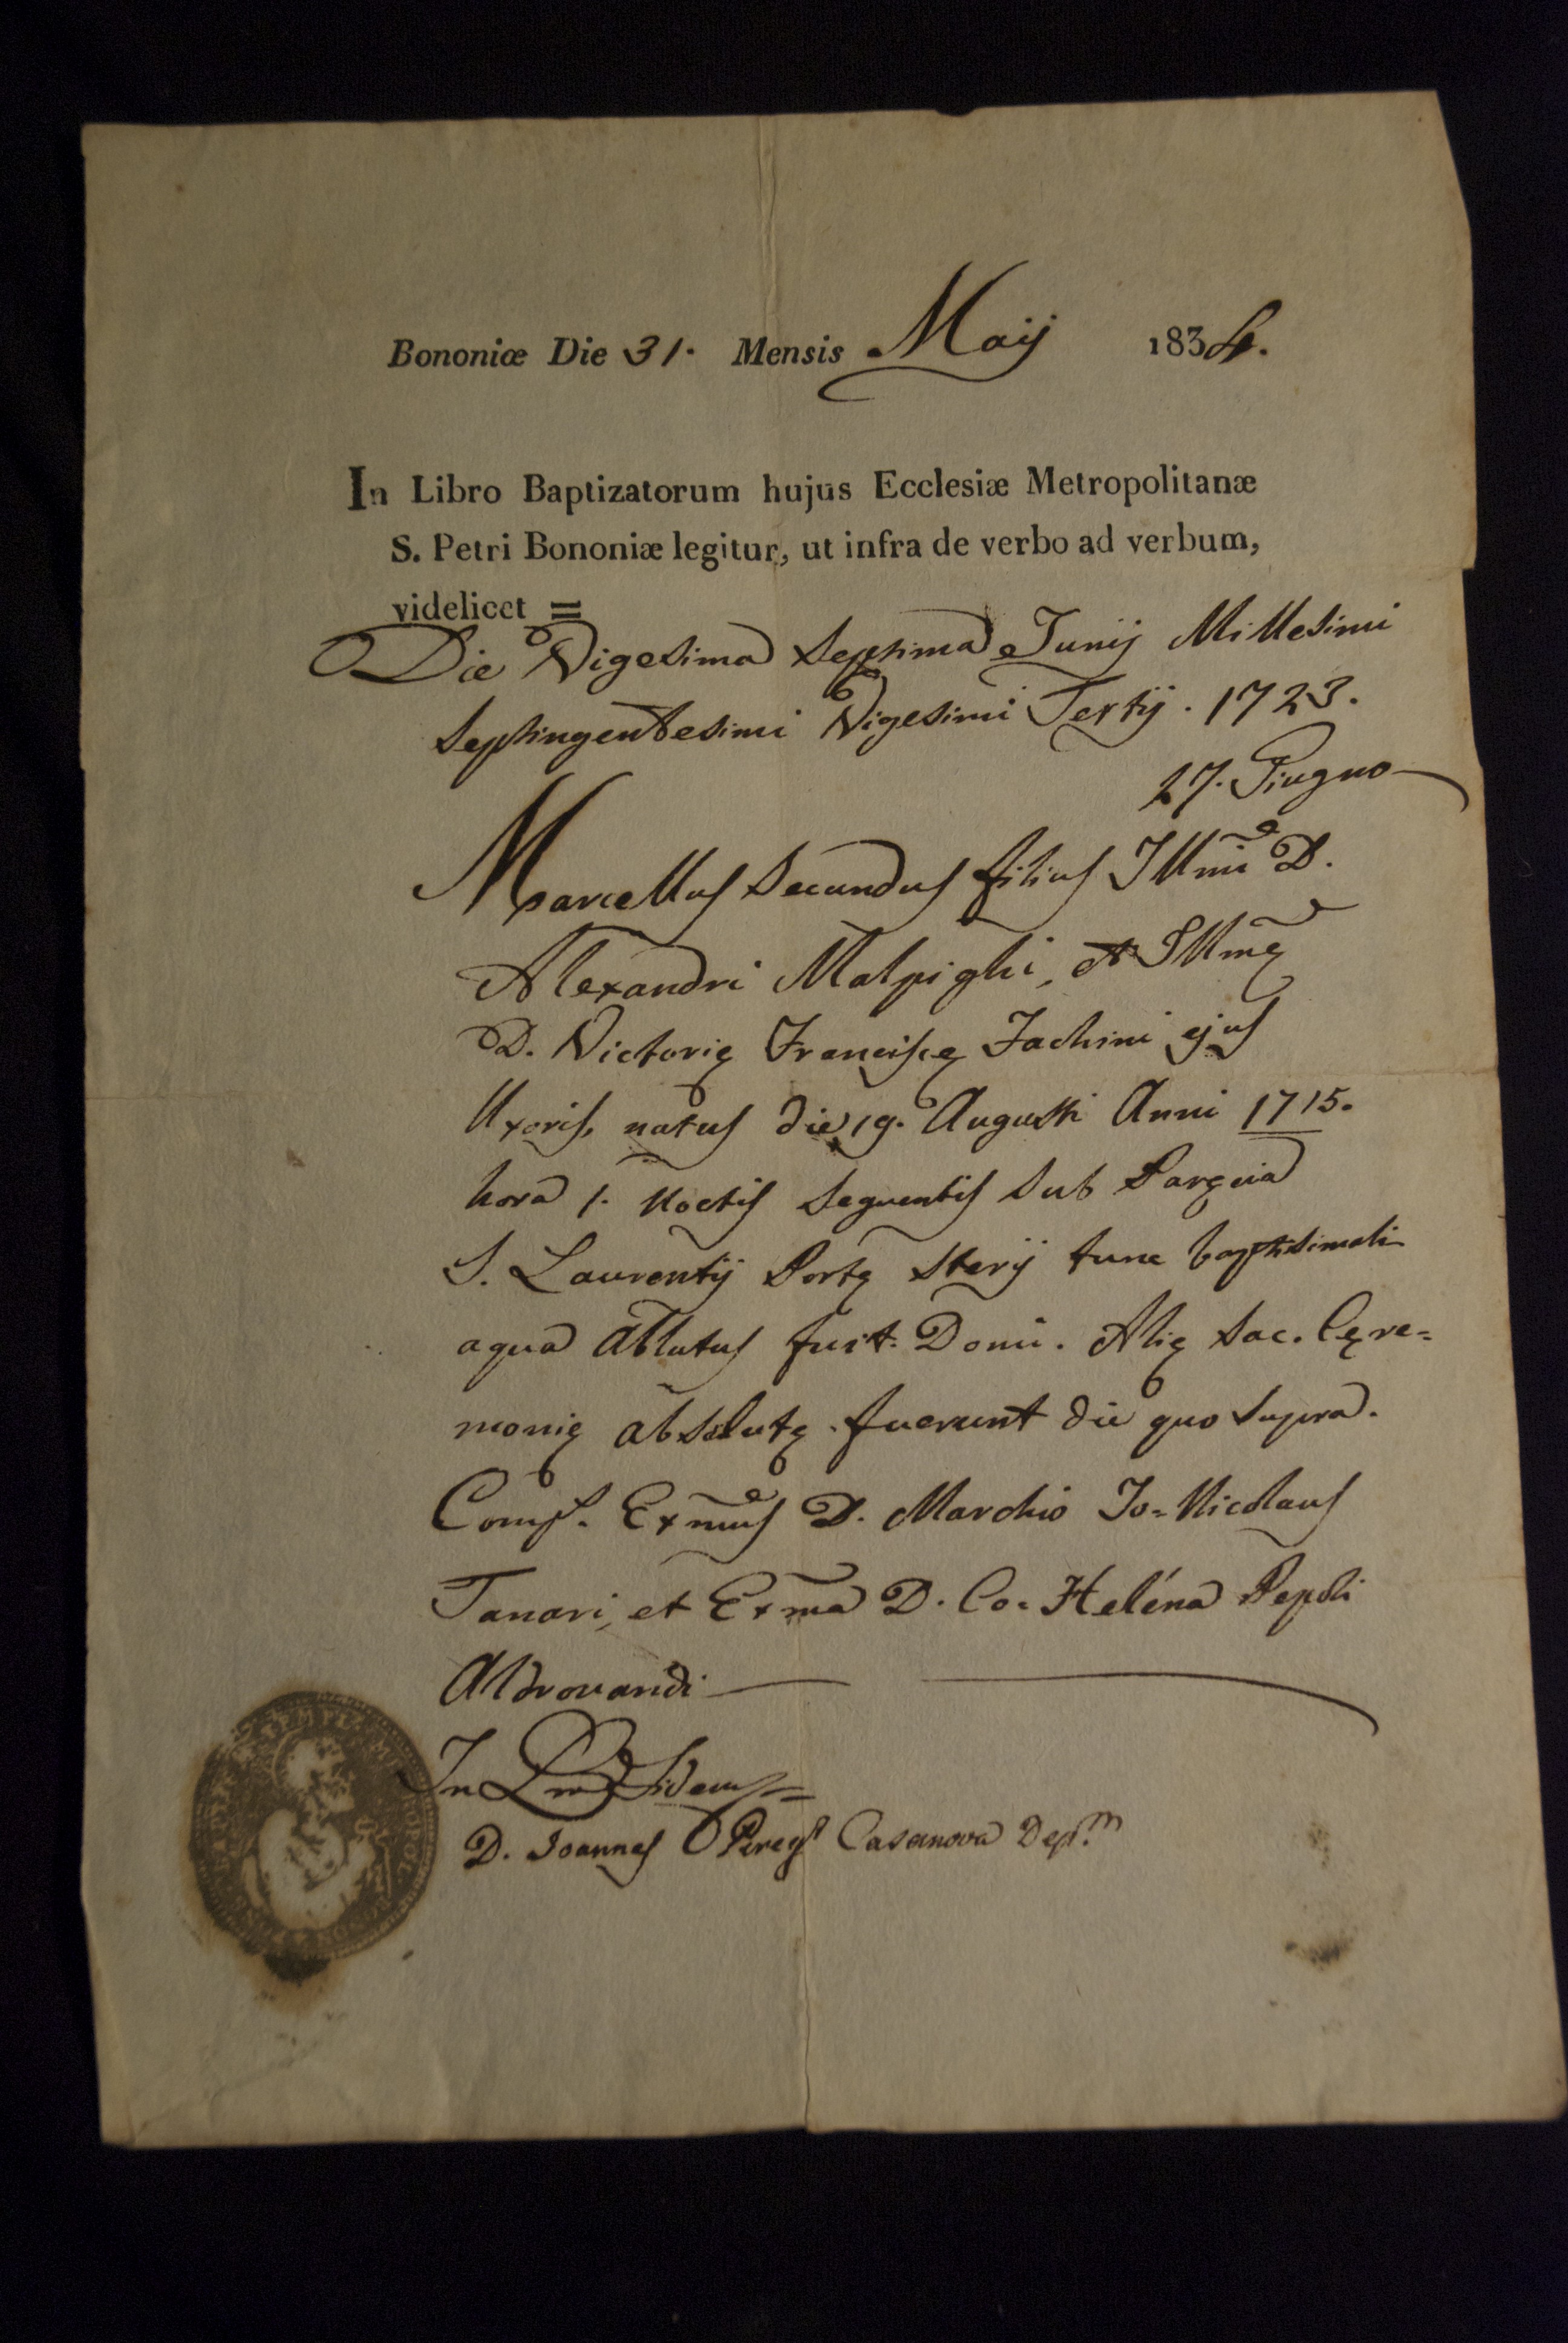 Bononiæ Die 31. Mensis Maij 1834.
In Libro Baptizatorum hujus Ecclesiæ Metropolitanæ
S. Petri Bononiæ legitur, ut infra de verbo ad verbum,
videlicet =
Die Vigesima Septima Junij Millesimi
Septingentesimi Vigesimi Tertij. 1723.
27. Giugno
Marcellus Secundus filius Illmi D.
Alexandri Malpighi, et Illmę
D. Victorię Francisce Jachini ejus
Uxoris, natus die 19. Augusti Anni 1715.
hora 1. noctis sequentis sub Paręcia
S. Laurentij Portę Sterij tunc baptisimali
aqua ablutus fuit Domi. Alię sac. Cęre=
monię absolutę fuerunt die quo supra.
Comp. Exmus D. Marchio Jo=Nicolaus
Tanari, et Exma D. Co= Heléna Pepoli
Aldrovandi
In Fidem
D. Joannes Casanova Dep.